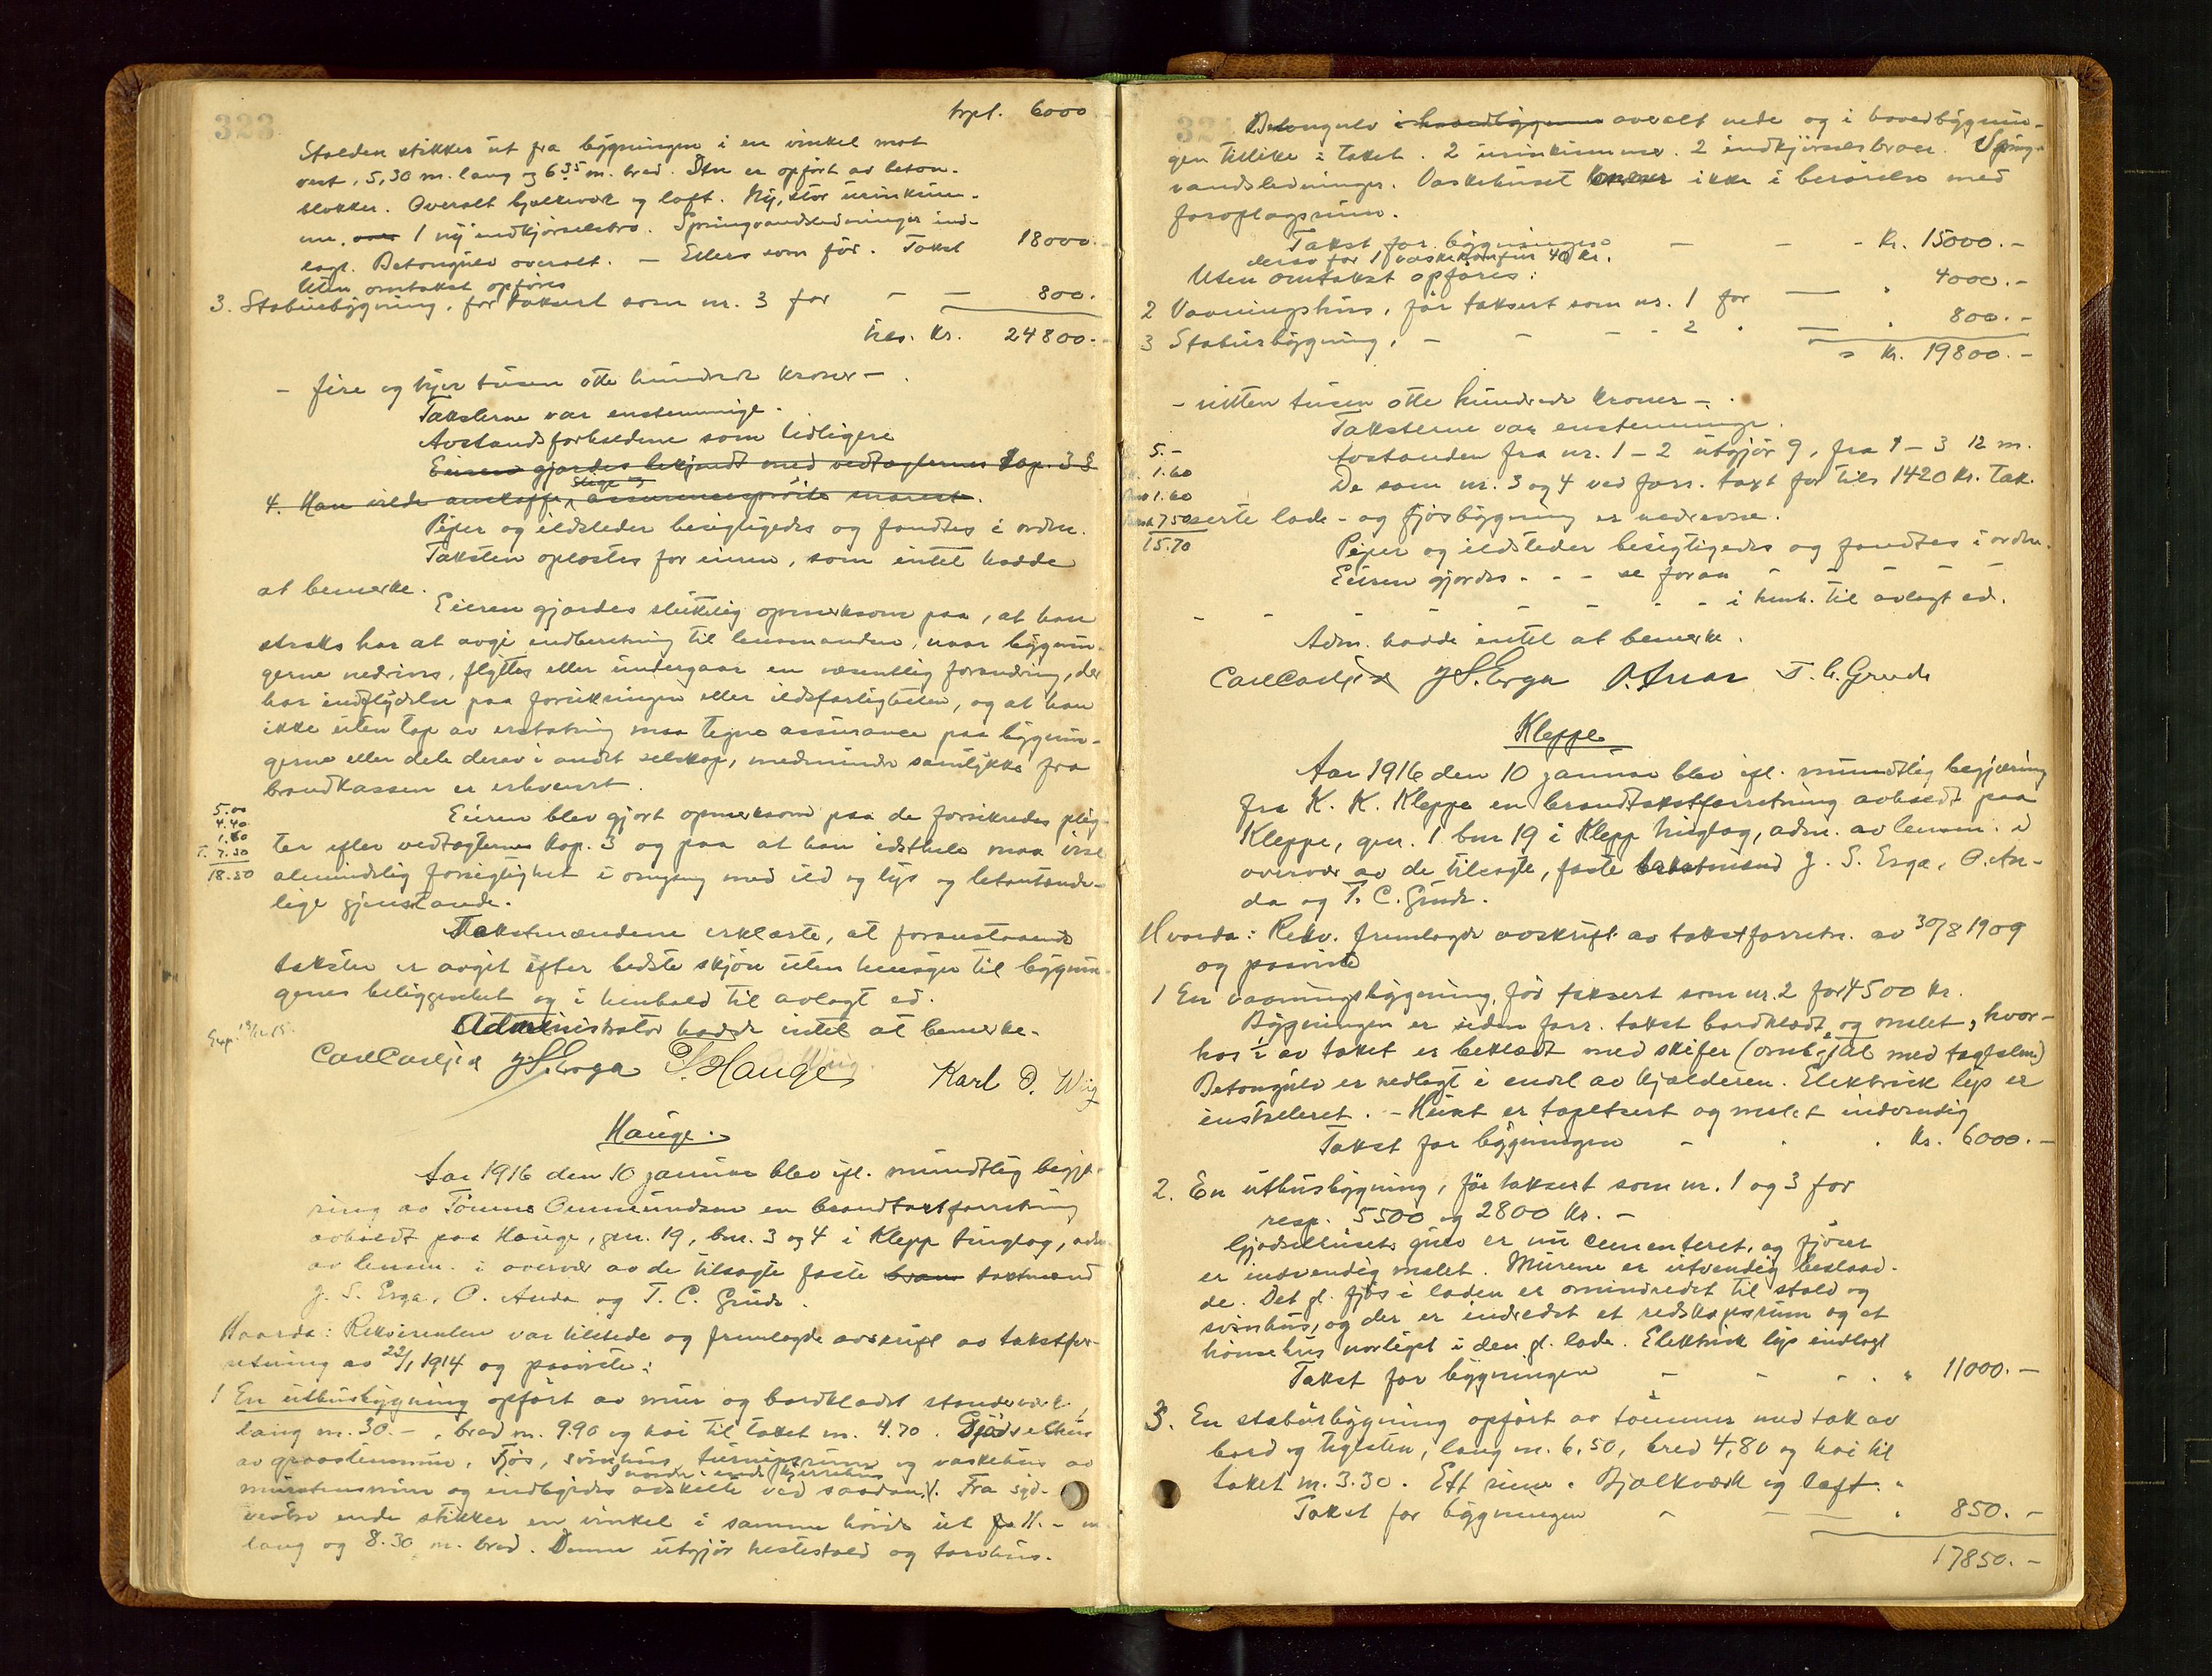 323
trpt. 6000
Stalden stikker ut fra bygningen i en vinkel mot
vest, 5,30 m. lang og 6.35 m. bred. Den er opført av beton-
blokker. Overalt bjelkeværk og loft. Ny, stor urinkum-
me, 1 ny indkjørselsbro. Springvandsledninger ind-
lagt. Betongulv overalt. — Ellers som før. Takst 18000.
Uten omtakst opføres
3. Stabursbygning, før taksert som nr. 3 for — — 800.
tils. Kr. 24800.-
- fire og tyve tusen otte hundrede kroner - .
Taksterne var enstemmige.
Avstandsforholdene som tidligere
Eieren gjordes bekjendt med vedtægternes kap. 3 §
4. Han vilde anskaffe stige og snarest.
Piper og ildsteder besigtigedes og fandtes i orden.
Taksten oplæstes for eieren, som intet hadde
at bemerke.
Eieren gjordes slutelig opmerksom paa, at han
straks har at avgi indberetning til lensmanden, naar bygnin-
gerne nedrives, flyttes eller undergaar en væsentlig forandring, der
har indflydelse paa forsikringen eller ildsfarligheten, og at han
ikke uten tap av erstatning maa tegne assurance paa bygnin-
gerne eller dele derav i andet selskap, medmindre samtykke fra
brandkassen er erhvervet.
5.00
4.40
1.60
T. 7.50
18.50
Eieren blev gjort opmerksom paa de forsikredes plig-
ter efter vedtægternes kap. 3 og paa at han idethele maa vise
almindelig forsigtighet i omgang med ild og lys og letantænde-
lige gjenstande.
Takstmændene erklærte, at foranstaaende
takster er avgit efter bedste skjøn uten hensyn til bygnin-
genes beliggenhet og i henhold til avlagt ed.
Administrator hadde intet at bemerke.
Carl Carlsen J. S. Erga S. Hauge Karl O. Wiig
Hauge.
Aar 1916 den 10 januar blev ifl. mundtlig begjæ-
ring av Tønnes Ommundsen en brandtakstforretning
avholdt paa Hauge, gnr. 19, bnr. 3 og 4 i Klepp tinglag, adm.
av lensm. i overvær av de tilsagte faste takstmænd
J. S. Erga, O. Anda og T. C. Grude.
Hvorda: Rekvirenten var tilstede og fremlagde avskrift av takstfor-
retning av 22/1 1914 og paaviste:
1 En uthusbygning opført av mur og bordklædt stenderverk,
lang m. 30.-, bred m. 9.90 og høi til taket m. 4.70. Gjødselhus
av graastensmur, fjøs, svinhus, turnipsrum og vaskehus av
I nordre ende kjerrehus
murstensmur og indbyrdes adskilte ved saadan. Fra syd-
vestre ende stikker en vinkel i samme høide ut 11.- m
lang og 8.30 m. bred. Denne utgjør hestestald og torvhus.
324
Betongulv i hovedbygningen overalt nede og i hovedbygnin-
gen tillike i taket. 2 urinkummer. 2 indkjørselsbroer. Spring-
vandsledninger. Vaskehuset ikke i berørelse med
foroplagsrum.
Takst for bygningen — — - Kr. 15000.-
derav for 1 vaskekomfur 40 kr.
Uten omtakst opføres:
2 Vaaningshus, før taksert som nr. 1 for — " 4000.-
3 Stabursbygning, - - - - 2 " — " 800.-
= Kr. 19800.-
- nitten tusen otte hundrede kroner -.
Taksterne var enstemmige.
5.-
1.60
1.60
7.50
15.70
Avstanden fra nr. 1-2 utgjør 9, fra 1-3 12 m.
De som nr. 3 og 4 ved forr. takst for tils 1420 kr. tak-
serte lade- og fjøsbygning er nedrevne.
Piper og ildsteder besigtigedes og fandtes i orden.
Eieren gjordes - - - se foran - - - -
- - - - - - - i henh. til avlagt ed.
Adm. hadde intet at bemerke.
Carl Carlsen J. S. Erga O. Anda T. C. Grude
Kleppe
Aar 1916 den 10 januar blev ifl. mundtlig begjæring
fra K. K. Kleppe en brandtakstforretning avholdt paa
Kleppe, gnr. 1 bnr 19 i Klepp tinglag, adm. av lensm. i
overvær av de tilsagte, faste takstmænd J. S. Erga, O. An-
da og T. C. Grude.
Hvorda: Rekv. fremlagde avskrift av takstforretn. av 30/8 1909
og paaviste
1 En vaaningsbygning, før taksert som nr. 2 for 4500 kr.
Bygningen er siden forr. takst bordklædt og malet, hvor-
hos 1/2 av taket er beklædt med skifer (ombygget med tagsten)
Betongulv er nedlagt i endel av kjælderen. Elektrisk lys er
installeret. - Huset er tapetsert og malet indvendig
Takst for bygningen - . . Kr. 6000.-
2. En uthusbygning, før taksert som nr. 1 og 3 for
resp. 5500 og 2800 kr. -
Gjødselhusets gulv er nu cementeret, og fjøset
er indvendig malet. Murene er utvendig beslaa-
de. Det gl. fjøs i laden er omindredet til stald og
svinhus, og der er indredet et redskapsrum og et
hønsehus nordligst i den gl. lade. Elektrisk lys indlagt
Takst for bygningen - - - . " 11000.-
3. En stabursbygning opført av tømmer med tak av
bord og teglsten, lang m. 6,50, bred 4,80 og høi til
taket m. 3.30. Ett rum. Bjelkværk og loft.
Takst for bygningen - — — " 850.-
17850.-